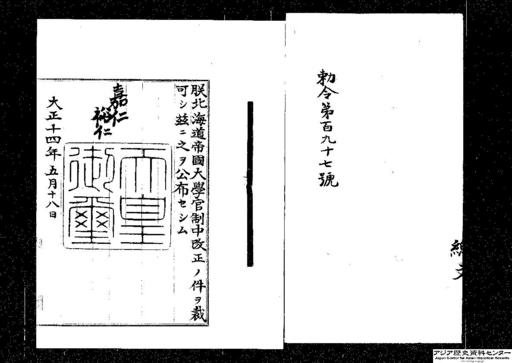 勅令第百九十七號
朕北海道帝國大學官制中改正ノ件ヲ裁
可シ茲ニ之ヲ公布セシム
嘉仁
裕仁
天皇
御璽
大正十四年五月十八日
アジア歴史資料センター
Japan Center for Asian Historical Records